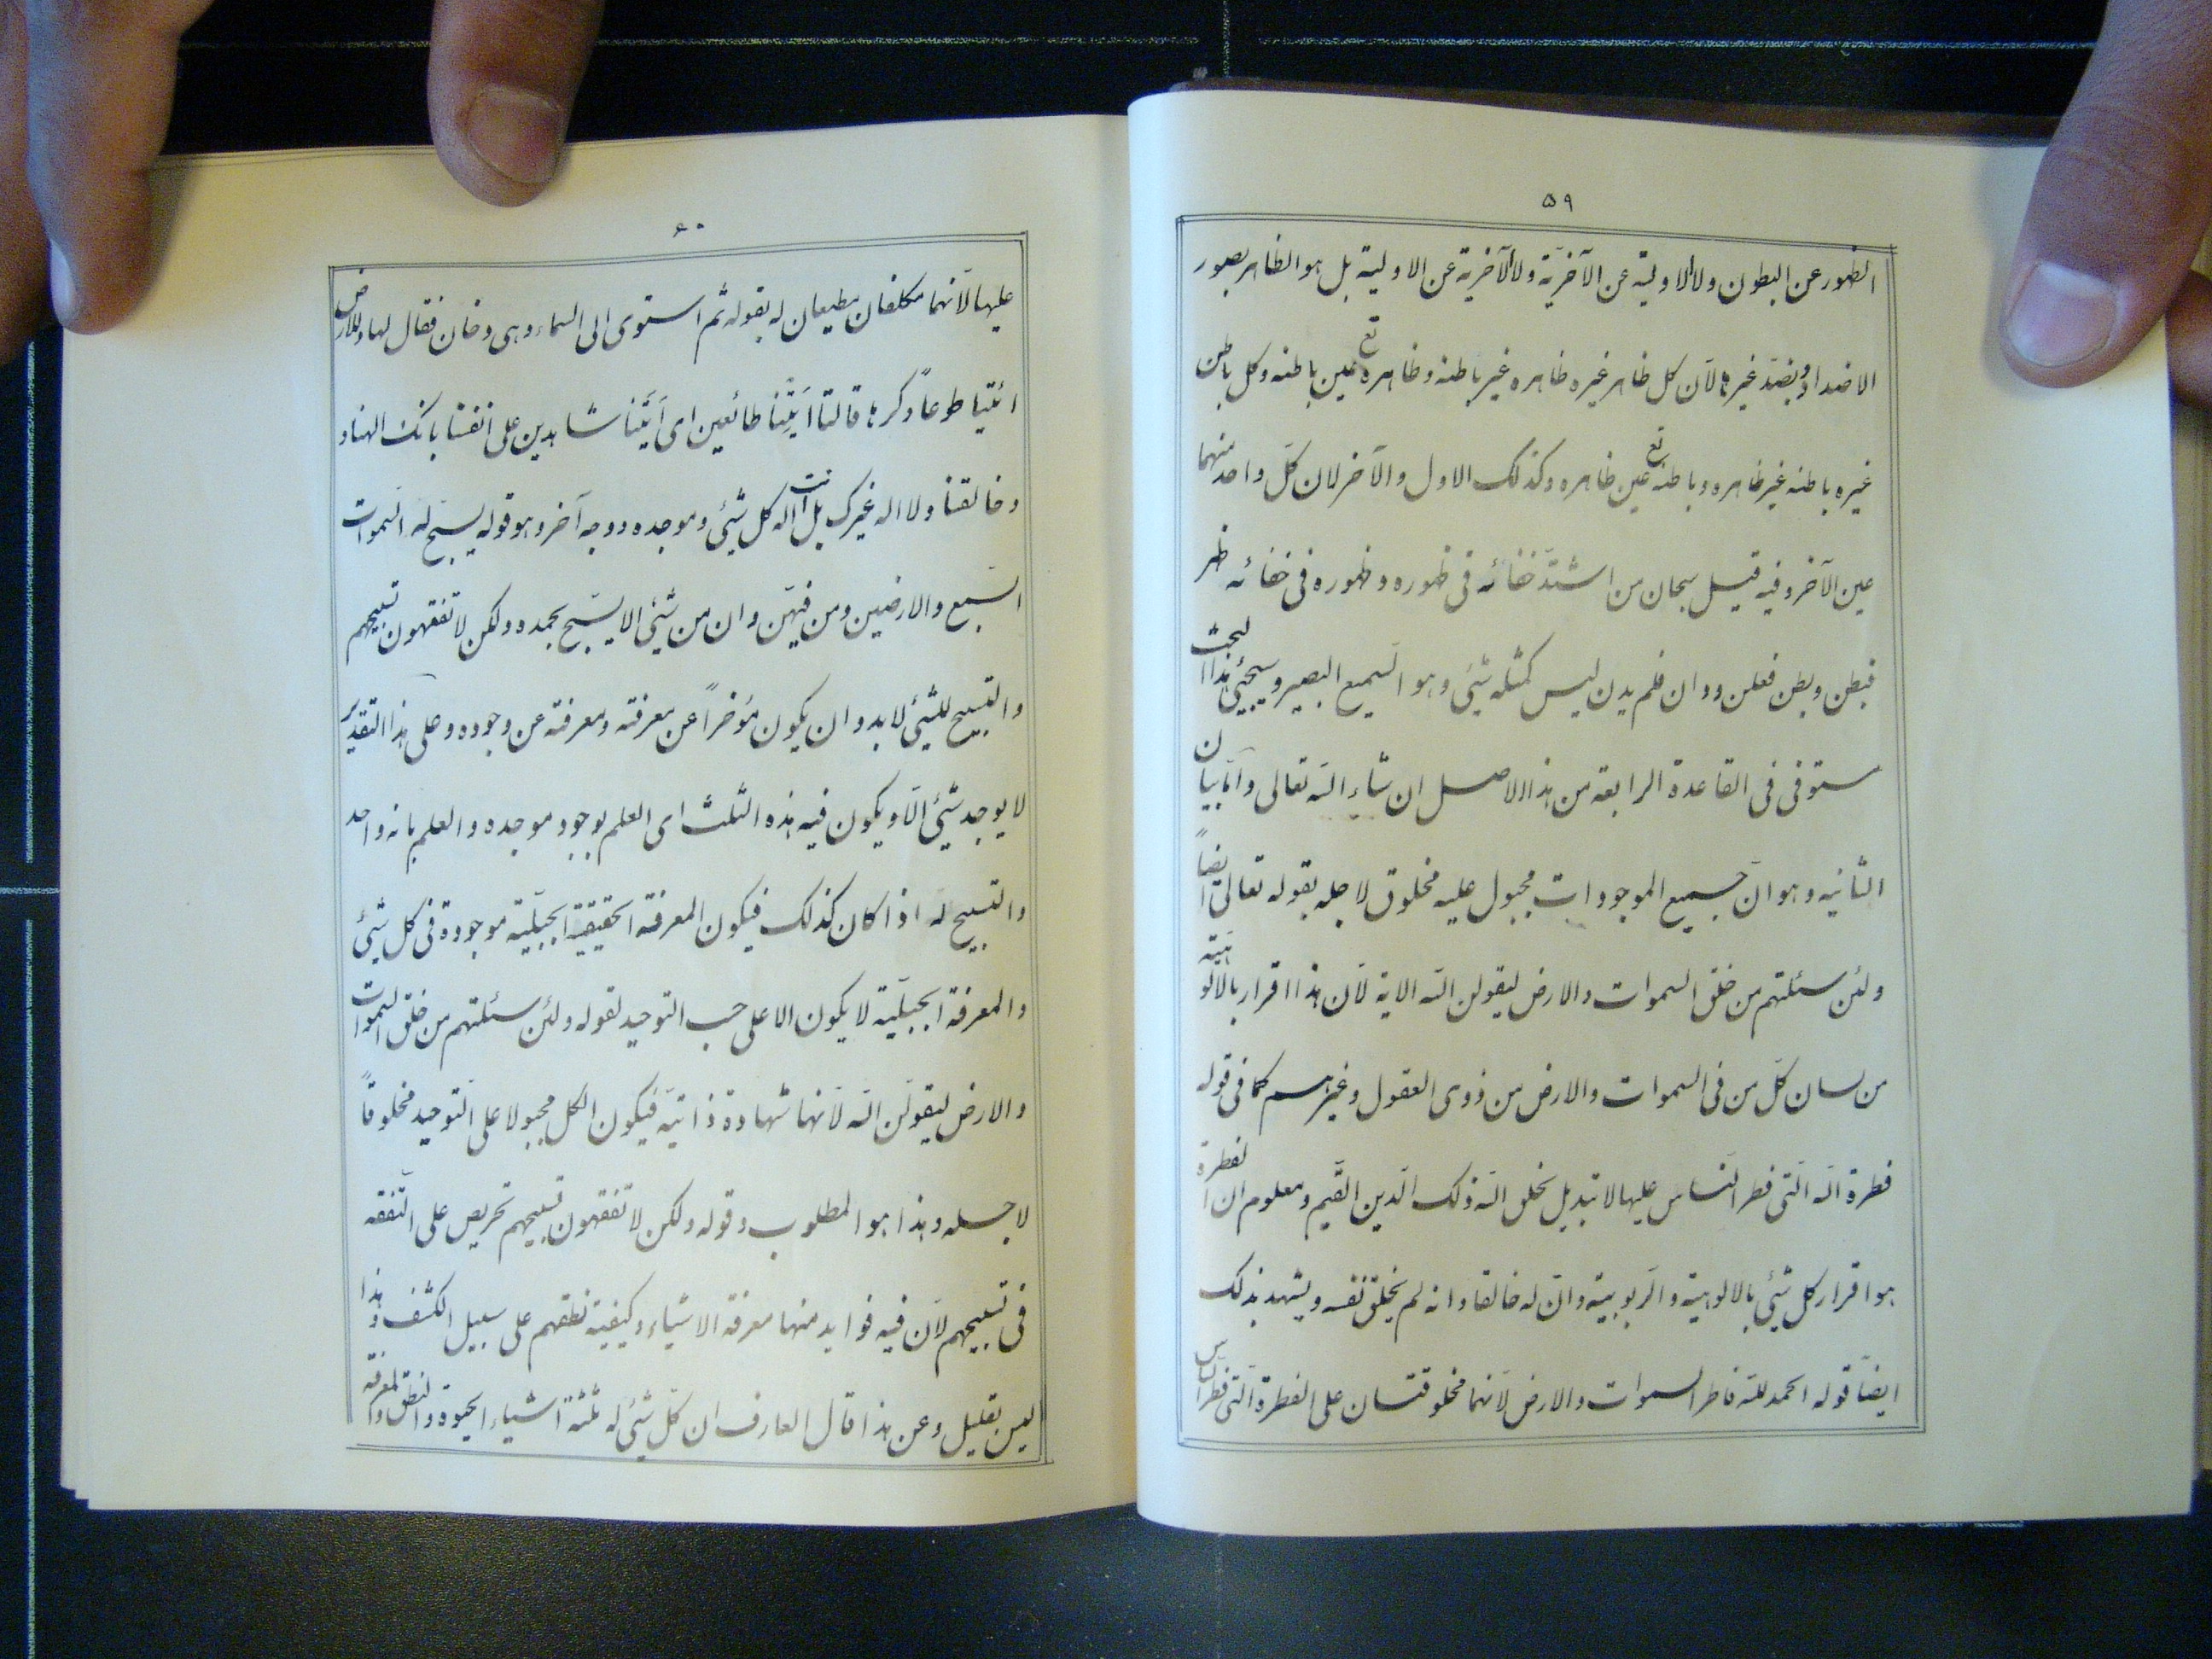 ۵۹
الظهور عن البطون ولا الاولية عن الآخريّة ولا الآخرية عن الاولية بل هو الظاهر بصور
الاضداد و بضدّ غيرها لانّ كل ظاهر غيره ظاهره غير باطنه و ظاهره تع عين باطنه وكل باطن
غيره باطنه غير ظاهره و باطنه تع عين ظاهره وكذلك الاول والآخر لان كلّ واحد منهما
عين الآخر وفيه قيل سبحان من اشتدّ خفائه فى ظهوره و ظهوره فى خفائه ظهر
فبطن و بطن فعلن و دان فلم يدن ليس كمثله شئى وهو السّميع البصير و سيجيئ هذا البحث
مستوفى فى القاعدة الرابعة من هذا الاصل ان شاء الله تعالى وامّا بيان
الثانيه وهو انّ جميع الموجودات مجبول عليه مخلوق لاجله بقوله تعالى ايضاً
ولئن سئلتهم من خلق السموات والارض ليقولن الله الاية لانّ هذا اقرار بالالوهيّته
من لسان كلّ من فى السموات والارض من ذوى العقول و غيرهم كما فى قوله
فطرة الله الّتى فطر النّاس عليها لا تبديل لخلق الله ذلك الدّين القيّم و معلوم ان الفطرة
هو اقرار كل شئى بالالوهيته والرّبوبيته وانّ له خالقا وانه لم يخلق نفسه و يشهد بذلك
ايضاً قوله الحمد لله فاطر السموات والارض لانّهما مخلوقتان على الفطرة الّتى فطر النّاس
۶۰
عليها لانّهما مكلفان مطيعان له بقوله ثم استوى الى السماء وهى دخان فقال لها وللارض
ائتيا طوعاً و كرها قالتا اتينا طائعين اى اتينا شاهدين على انفسنا بانّك الهنا و
وخالقنا ولا اله غيرك بل انت اله كل شئى وموجده ووجه آخر وهو قوله يسبّح له السّموات
السّبع والارضين ومن فيهّن وان من شئى الا يسبّح بحمده ولكن لا تفقهون تسبيحهم
والتّسبيح للشّئى لابد وان يكون مؤخراً عن معرفته ومعرفته عن وجوده و على هذا التقدير
لا يوجد شئى الّا ويكون فيه هذه الثلث اى العلم بوجود موجده والعلم بانه واحد
والتسبيح له اذا كان كذلك فيكون المعرفة الحقيقية الجبلّية موجودة فى كل شئى
والمعرفة الجبلّية لا يكون الا على حسب التوحيد لقوله ولئن سئلتهم من خلق السّموات
والارض ليقولّن الله لانّها شهادة ذاتيّه فيكون الكل مجبولا على التّوحيد مخلوقاً
لاجله وهذا هو المطلوب وقوله ولكن لا تفقهون تسبيحهم تحريص على التّفقه
فى تسبيحهم لانّ فيه فوايد منها معرفة الاشياء وكيفية نطقهم على سبيل الكشف و هذا
ليس بقليل و عن هذا قال العارف ان كلّ شئى له ثلثة اشياء الحيوة والنطق والمعرفة